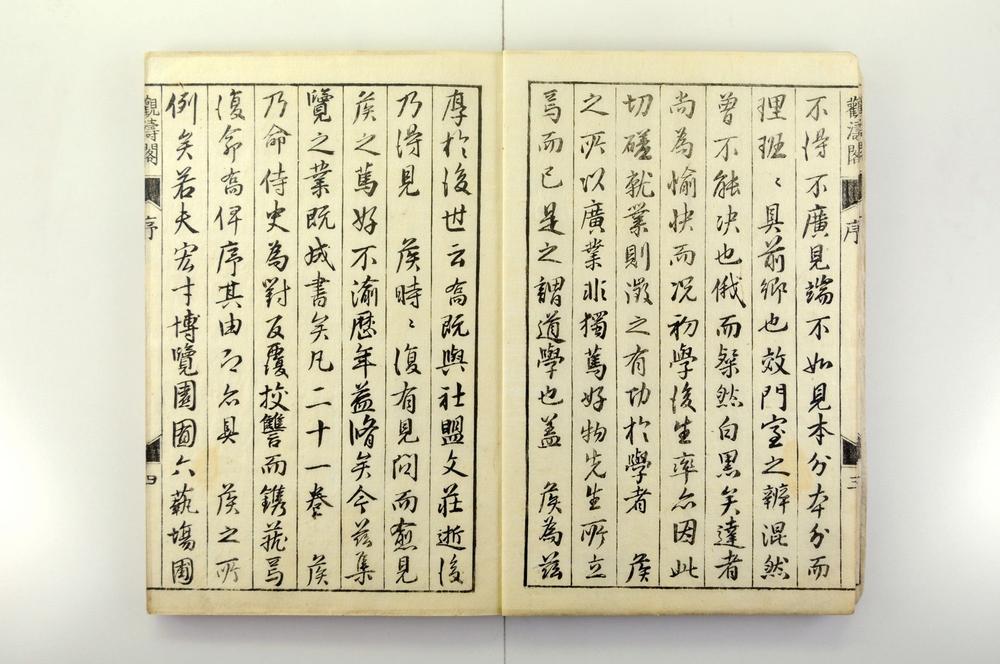 不得不廣見端不如見本分本分而
理班〻具前鄉也效門室之辨混然
曾不能決也俄而粲然白黑矣達者
尚為愉快而况初學後生率尒因此
切磋就業則澂之有功於學者　矦
之所以廣業非獨篤好物先生所立
焉而已是之謂道學也蓋　矦為茲
觀濤閣
序
三
序於後世云喬既與社盟文莊逝後
乃得見　矦時〻復有見問而愈見
矦之篤好不渝歷年益脩矣今茲集
覽之業既成書矣凡二十一卷　矦
乃命侍史為對反覆挍讐而鐫蕆焉
復命喬俾序其由乃尒具　矦之所
例矣若夫宏才博覽園囿六藝場圃
觀濤閣
序
四